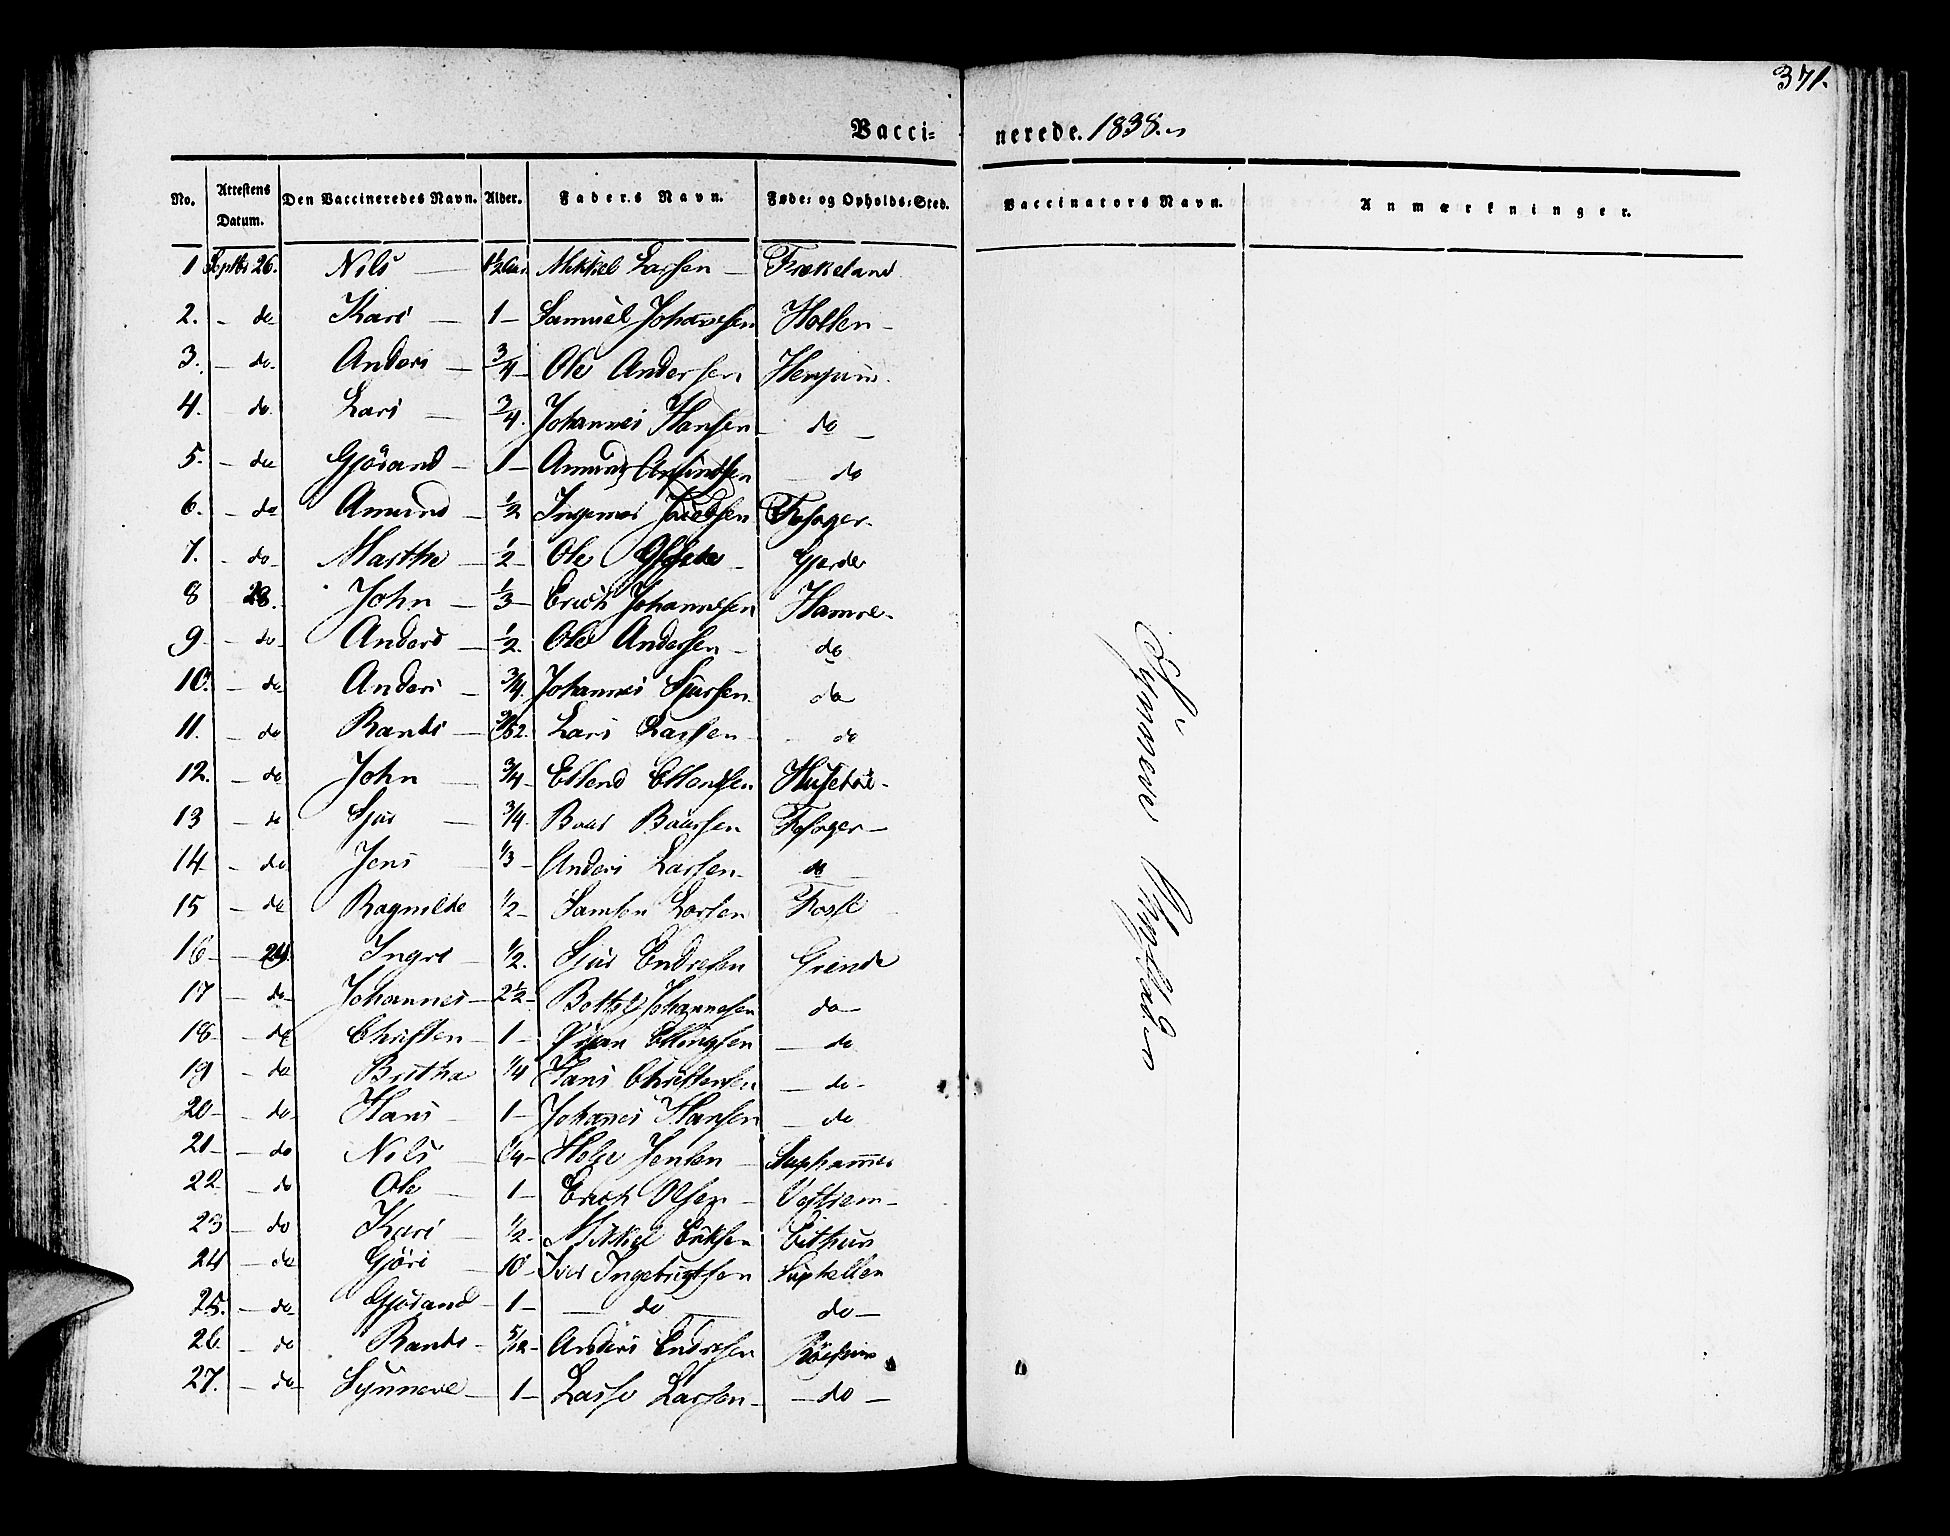 371.
Vacci- nerede. 1838.
No. Attestens Datum. Den Vaccineredes Navn. Alder. Faders Navn. Føde- og Opholds-Sted. Vaccinators Navn. Anmærkninger.
1 Septbr 26. Nils — 1/2 Aar Mikkel Larsen — Frækeland
2. - do Kari — 1 — Samuel Johannesen Hollen —
3. - do. Anders — 3/4 — Ole Andersen Henjum.
4. - do. Lars — 3/4. Johannes Hansen — do —
5. - do Gjörand — 1 — Amund — do
6. - do Amund — 1/2 Ingemar Fosøger.
7. - do Marthe — 1/2 — Ole — Gjerde
8 28. John — 1/3 — Erich Johannesen Hamre.
9 - do Anders — 1/2. Ole Andersen — do
10. - do Anders — 3/4. Johannes Sjursen do
11. - do Randi — 3/52. Lars Larsen — do
12. - do John — 3/4 — Ellend Ellendsen Husebøe.
13 - do Sjur — 3/4. Baar Baarsen Fosøger —
14 - do Jens 1/3 — Anders Larsen — do
15 - do Ragnilde 1/2 — Samson Larsen
16 - 29. Ingri 1/2. Sjur Endresen Grinde
17 - do Johannes — 2 1/2 — Bottolf Johannesen do —
18 - do Christen — 1 — Ellingsen — do
19 - do Britha 1/4 Hans Christensen — do —
20 - do Hans — 1 — Johañes Hansen — do
21 - do Nils — 1/4 — Helje Jensen — Suphammer
22 - do Ole — 1 — Erich Olsen — Vestrem —
23 - do Kari — 1/2 — Mikkel Eriksen Eithun
24 - do Gjöri — 10 — Iver Ingebrigtsen Suphellen
25. - do Gjörand — 1 — — do do —
26 - do Randi — 5/12 — Anders Endresen Böetun
27. - do Synneve — 1 — Lasse Larsen — — do —
Synneve